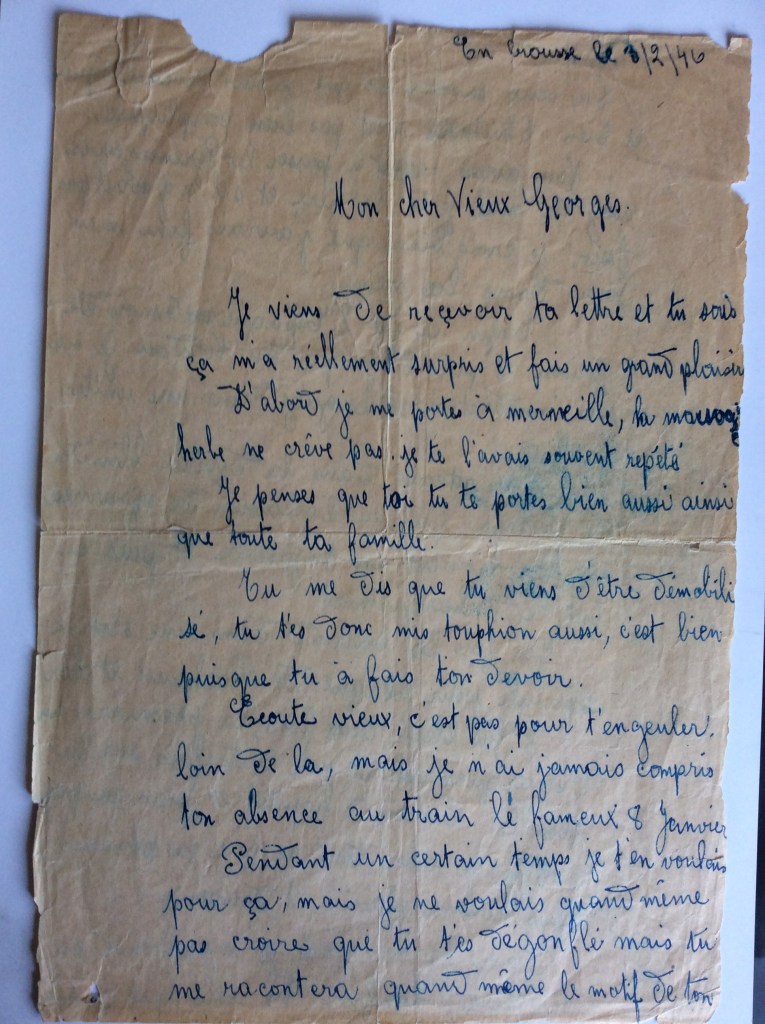 En brousse le 3/2/46
Mon cher Vieux Georges.
Je viens de reçevoir ta lettre et tu sais
ça m'a réellement surpris et fais un grand plaisir
D'abord je me portes à merveille, la mauvai
herbe ne crêve pas. je te l'avais souvent repété
Je penses que toi tu te portes bien aussi ainsi
que toute ta famille.
Tu me dis que tu viens d'être démobili
sé, tu t'es donc mis touphion aussi, c'est bien
puisque tu à fais ton devoir.
Ecoute vieux, c'est pas pour t'engeuler.
loin de la, mais je n'ai jamais compris
ton absence au train le fameux 8 Janvier
Pendant un certain temps je t'en voulais
pour ça, mais je ne voulais quand même
pas croire que tu t'es dégonflé mais tu
me racontera quand même le motif de ton